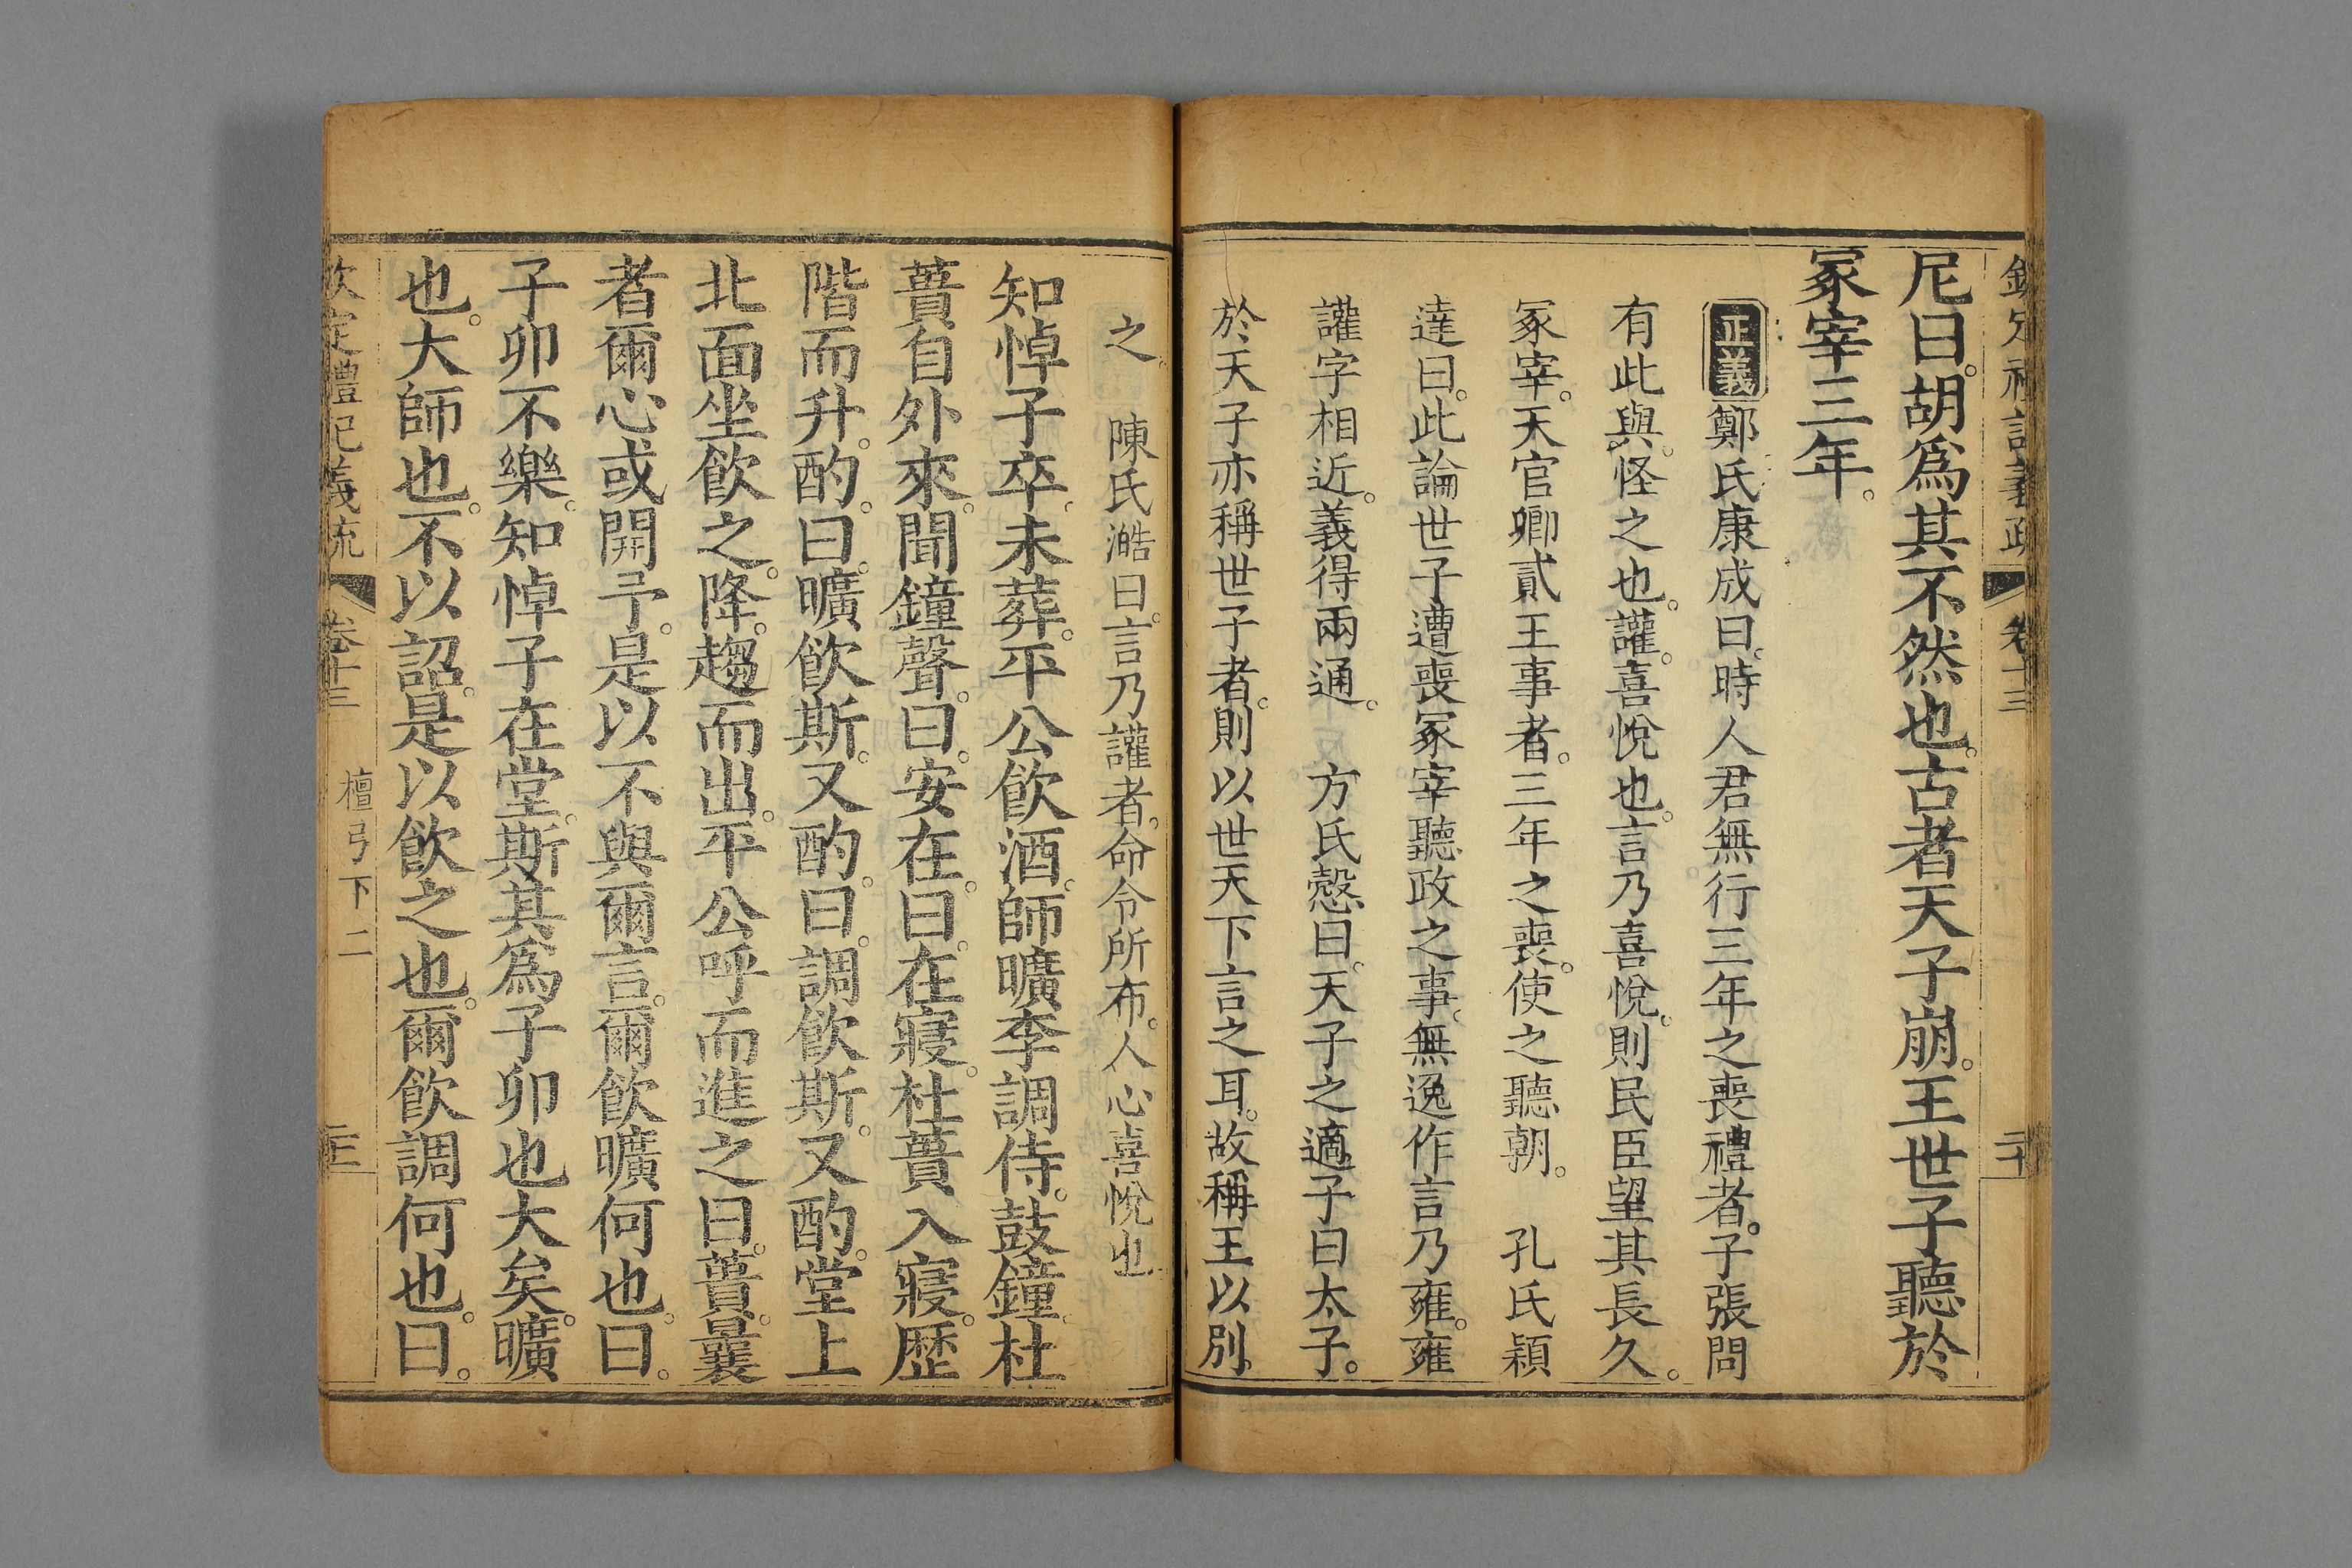 尼曰。胡爲其不然也。古者天子崩。王世子聽於
冢宰三年。
正義鄭氏康成曰。時人君無行三年之喪禮者。子張問
有此與。怪之也。讙。喜悅也。言乃喜悅。則民臣望其長久。
冢宰。天官卿貳王事者。三年之喪。使之聽朝。 孔氏穎
達曰。此論世子遭喪冢宰聽政之事。無逸作言乃雍。雍
讙字相近。義得兩通。 方氏慤曰。天子之適子曰太子。
於天子亦稱世子者。則以世天下言之耳。故稱王以別
之。 陳氏澔曰。言乃讙者。命令所布。人心喜悅也
知悼子卒。未葬。平公飲酒。師曠李調侍。鼓鐘。杜
蕢自外來。聞鐘聲。曰。安在。曰。在寢。杜蕢入寢。歷
階而升。酌。曰。曠飲斯。又酌。曰。調飲斯。又酌。堂上
北面坐飲之。降。趨而出。平公呼而進之曰。蕢。曩
者爾心或開予。是以不與爾言。爾飲曠何也。曰。
子卯不樂。知悼子在堂。斯其爲子卯也大矣。曠
也。大師也。不以詔。是以飲之也。爾飲調何也。曰。
欽定禮記義疏 卷十三 檀弓下二